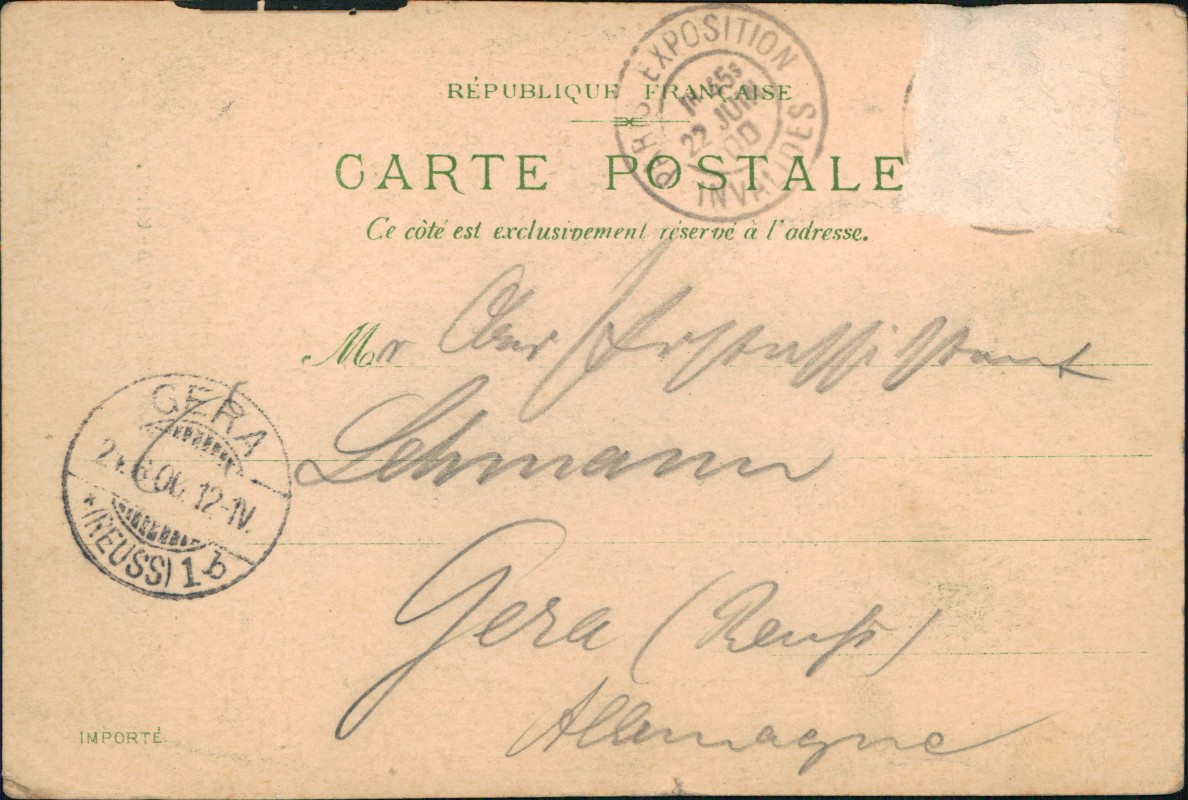 PARIS EXPOSITION
45S
22 JUIN
00
INVALIDES
RÉPUBLIQUE FRANÇAISE
CARTE POSTALE
Ce côté est exclusivement réservé à l'adresse.
Mr Ober
Lehmann
GERA
.00. 12-1V.
*(REUSS) 1 b
Gera (Reuß)
Allemagne
IMPORTÉ.